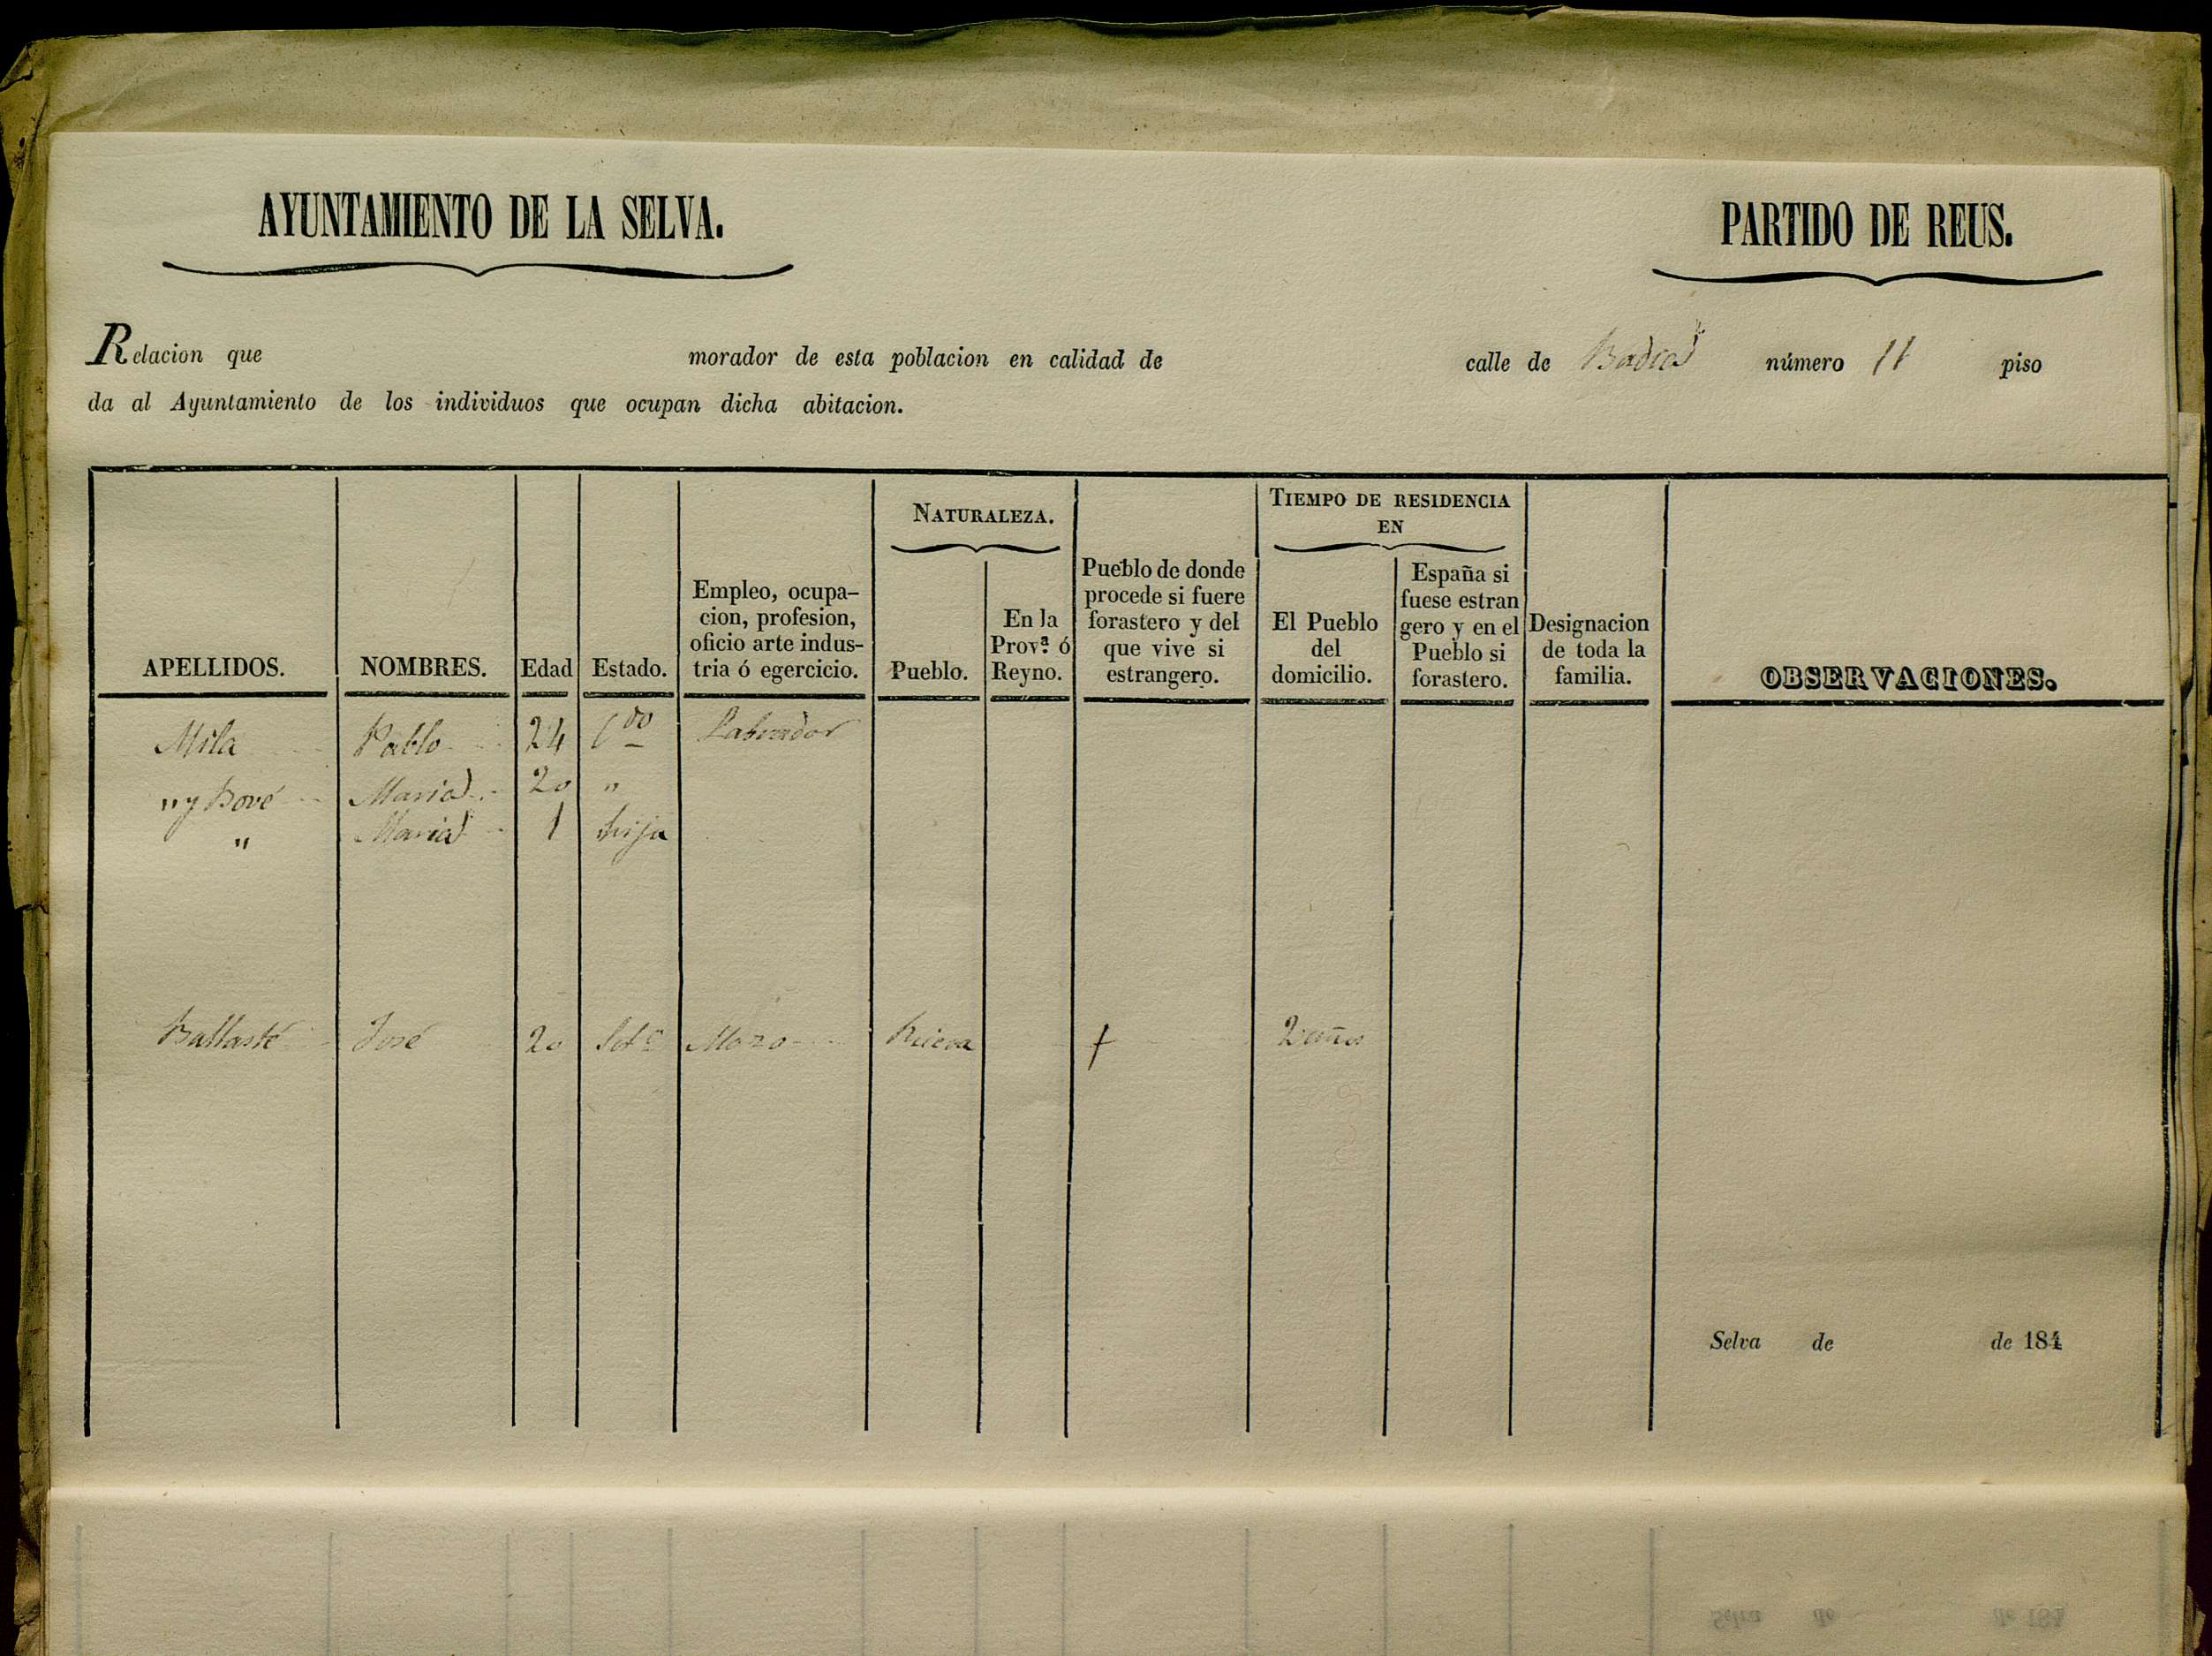 AYUNTAMIENTO DE LA SELVA.
PARTIDO DE REUS.
Relacion que morador de esta poblacion en calidad de calle de Badia número 11 piso
da al Ayuntamiento de los individuos que ocupan dicha abitacion.
APELLIDOS.
NOMBRES.
Edad
Estado.
Empleo, ocupa-
cion, profesion,
oficio arte indus-
tria ó egercicio.
NATURALEZA.
Pueblo.
En la
Provª ó
Reyno.
Pueblo de donde
procede si fuere
forastero y del
que vive si
estrangero.
TIEMPO DE RESIDENCIA
EN
El Pueblo
del
domicilio.
España si
fuese estran
gero y en el
Pueblo si
forastero.
Designacion
de toda la
familia.
OBSERVACIONES.
Mila Pablo 24 Cdo Labrador
" y Bové Maria 20 "
" Maria 1 hija
Ballasté José 20 Solo Mozo 2 años
Selva de de 184